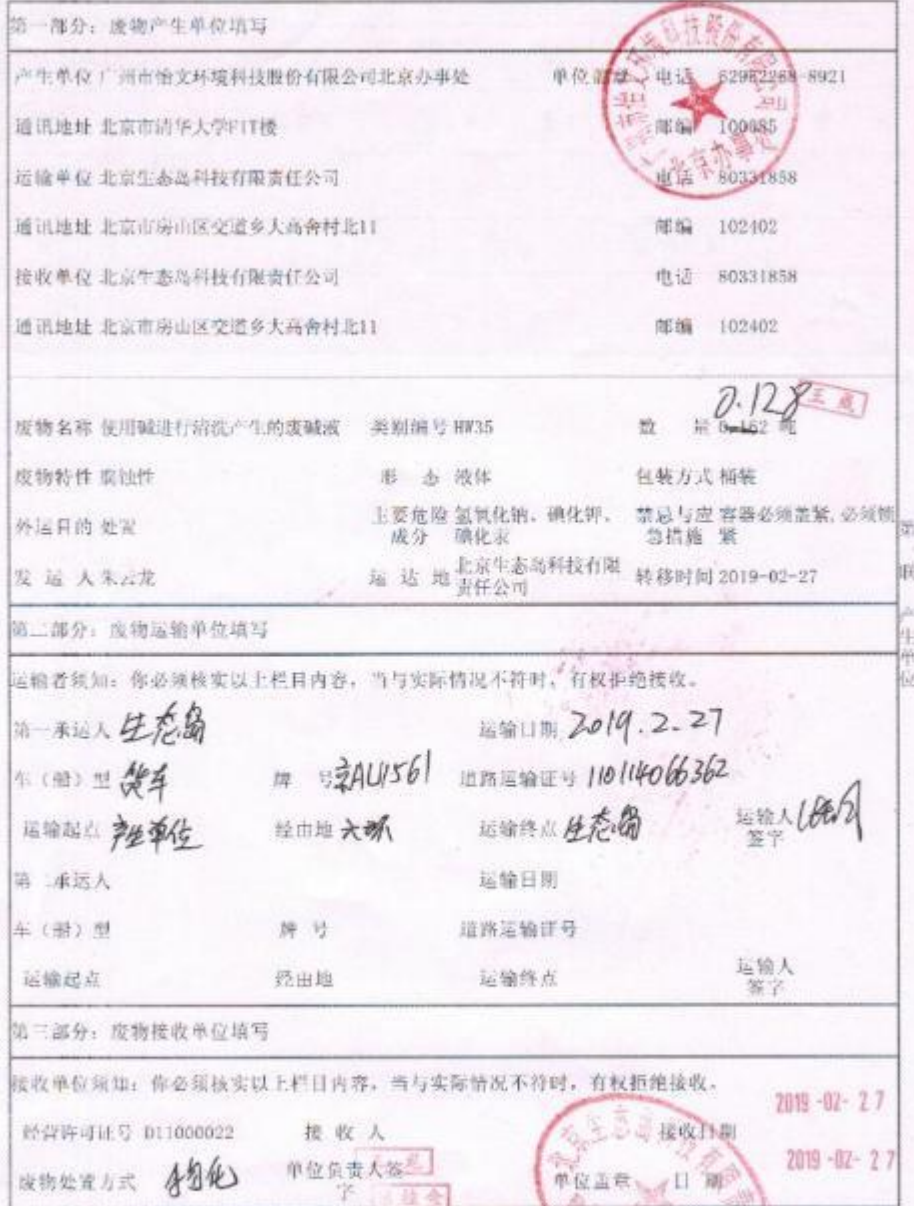 第一部分：废物产生单位填写
产生单位 广州市怡文环境科技股份有限公司北京办事处 单位盖章 电话 62982268-8921
通讯地址 北京市清华大学FIT楼 邮编 100085
运输单位 北京生态岛科技有限责任公司 电话 80331858
通讯地址 北京市房山区交道乡大高舍村北11 邮编 102402
接收单位 北京生态岛科技有限责任公司 电话 80331858
通讯地址 北京市房山区交道乡大高舍村北11 邮编 102402
0.128
废物名称 使用碱进行清洗产生的废碱液 类别编号 HW35 数 量 0.162 吨
废物特性 腐蚀性 形 态 液体 包装方式 桶装
外运目的 处置 主要危险成分 氢氧化钠、碘化钾、碘化汞 禁忌与应急措施 容器必须盖紧,必须锁紧
发 运 人 朱云龙 运 达 地 北京生态岛科技有限责任公司 转移时间 2019-02-27
第二部分：废物运输单位填写
运输者须知：你必须核实以上栏目内容，当与实际情况不符时，有权拒绝接收。
第一承运人 生态岛 运输日期 2019.2.27
车（船）型 货车 牌 号 京AU1561 道路运输证号 110114066362
运输起点 产生单位 经由地 六环 运输终点 生态岛 运输人签字
第二承运人 运输日期
车（船）型 牌 号 道路运输证号
运输起点 经由地 运输终点 运输人签字
第三部分：废物接收单位填写
接收单位须知：你必须核实以上栏目内容，当与实际情况不符时，有权拒绝接收。
经营许可证号 D11000022 接 收 人 接收日期 2019-02-27
废物处置方式 物化 单位负责人签字 单位盖章 日 期 2019-02-27
产生单位